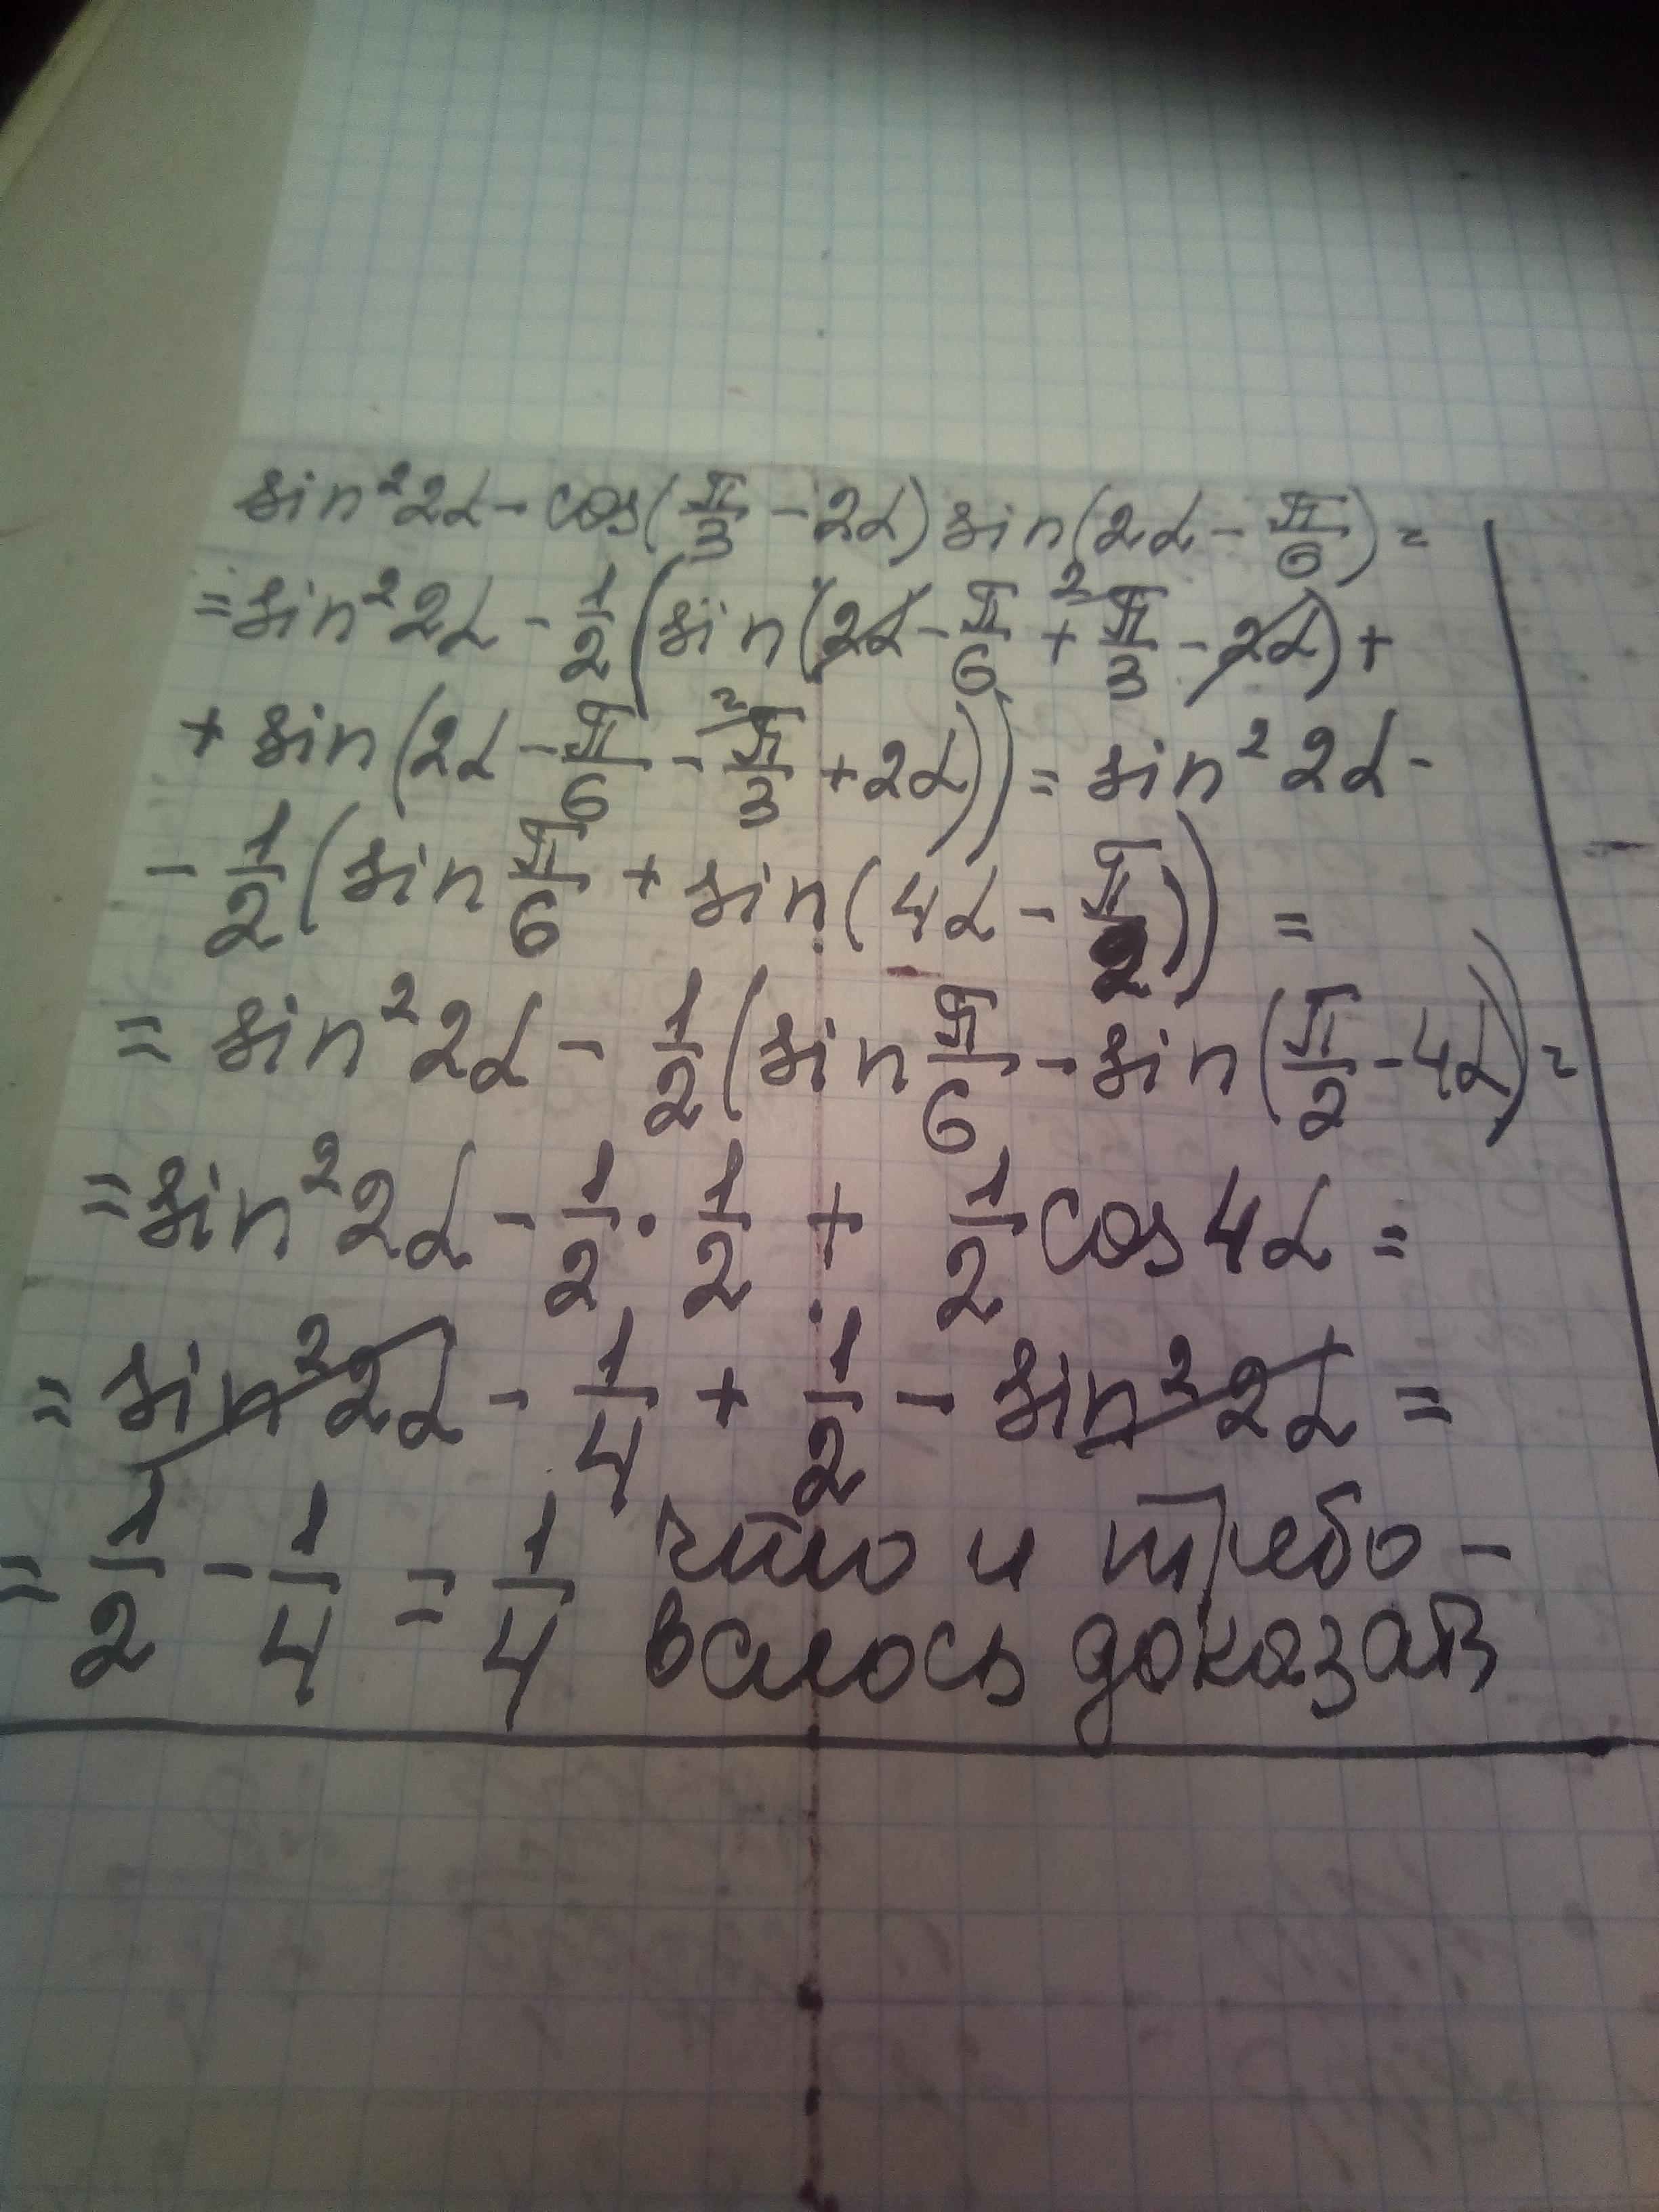 sin²2α - cos(π/3 - 2α) sin(2α - π/6) =
= sin²2α - 1/2 (sin(2α - π/6 + ²π/3 - 2α) +
+ sin(2α - π/6 - ²π/3 + 2α)) = sin²2α -
- 1/2 (sin π/6 + sin(4α - π/2)) =
= sin²2α - 1/2 (sin π/6 - sin(π/2 - 4α)) =
= sin²2α - 1/2 · 1/2 + 1/2 cos4α =
= sin²2α - 1/4 + 1/2 - sin²2α =
= 1/2 - 1/4 = 1/4 что и требо-
валось доказать